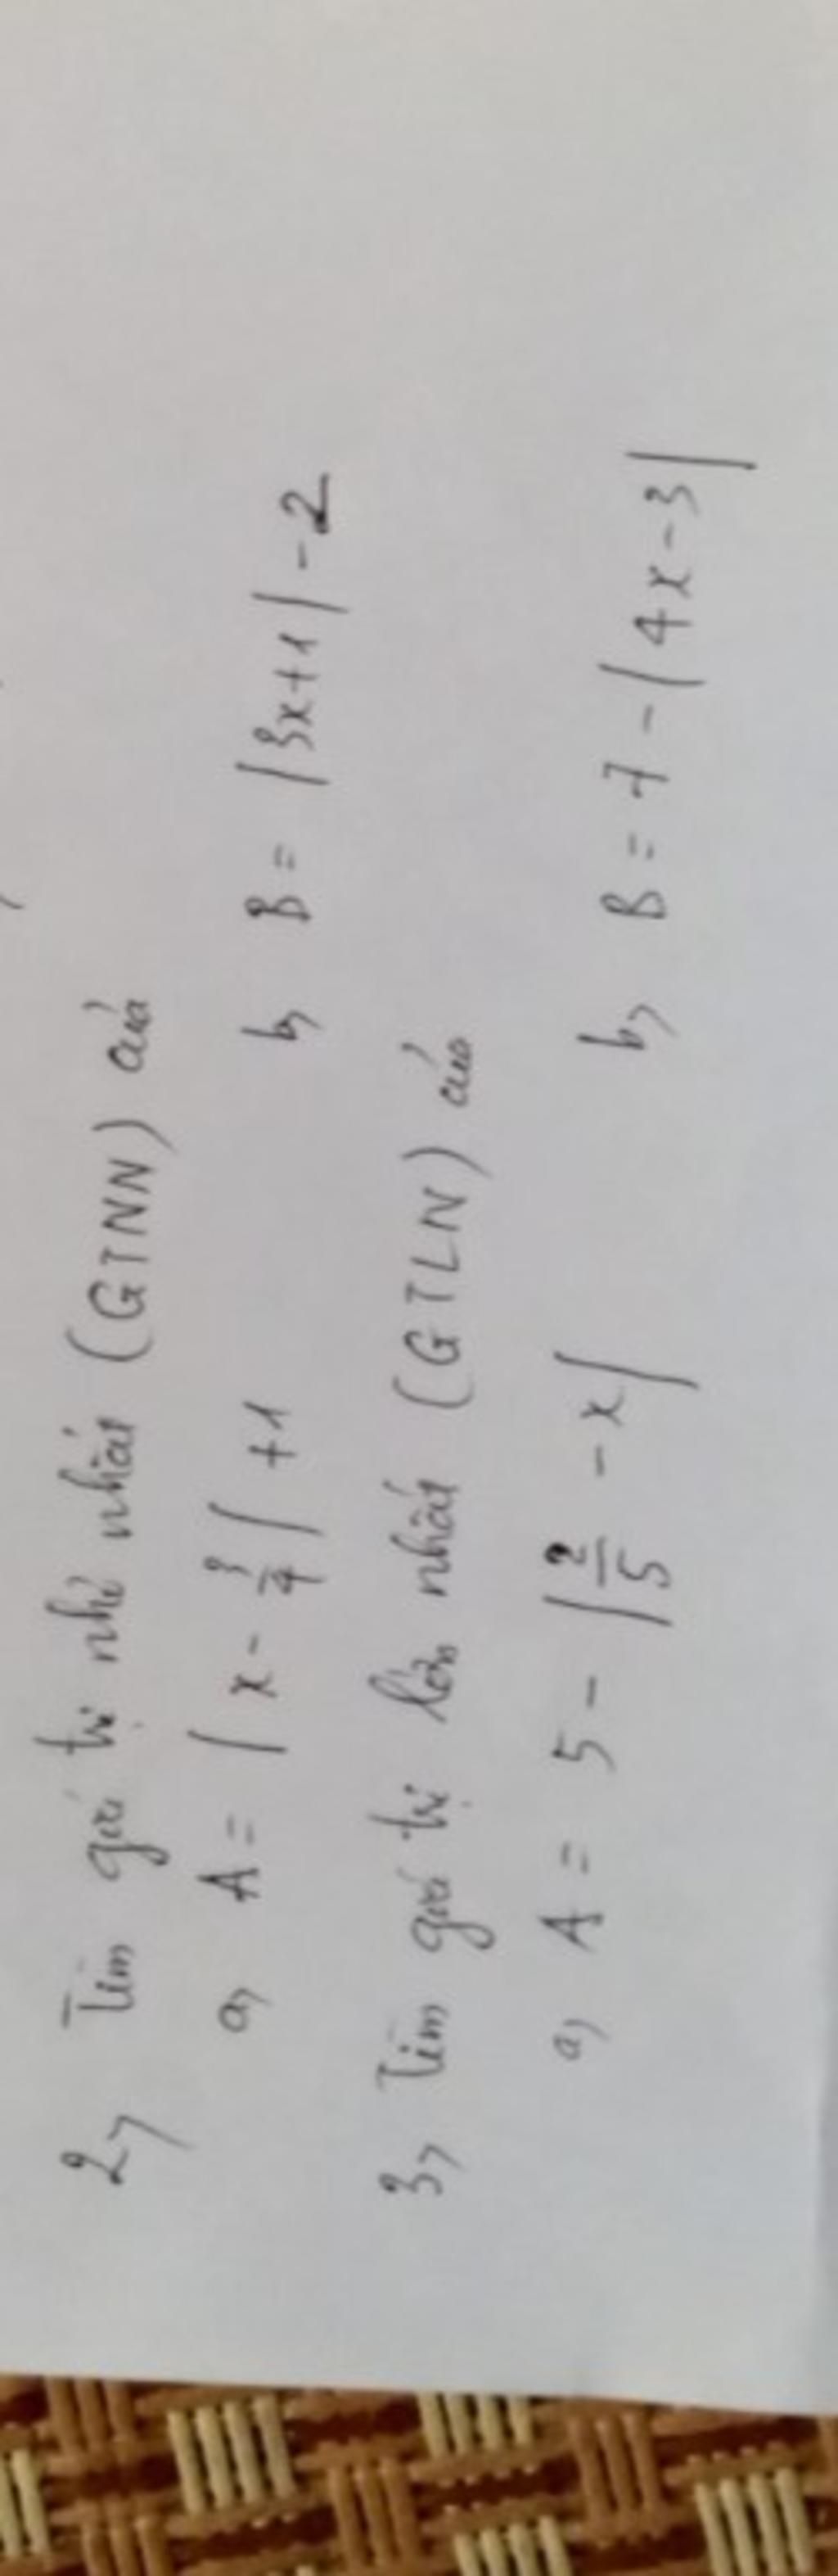 2, Tìm giá trị nhỏ nhất (GTNN) của
a, A = |x - 3/4| + 1 b, B = |3x+1| - 2
3, Tìm giá trị lớn nhất (GTLN) của
a, A = 5 - |2/5 - x| b, B = 7 - |4x - 3|